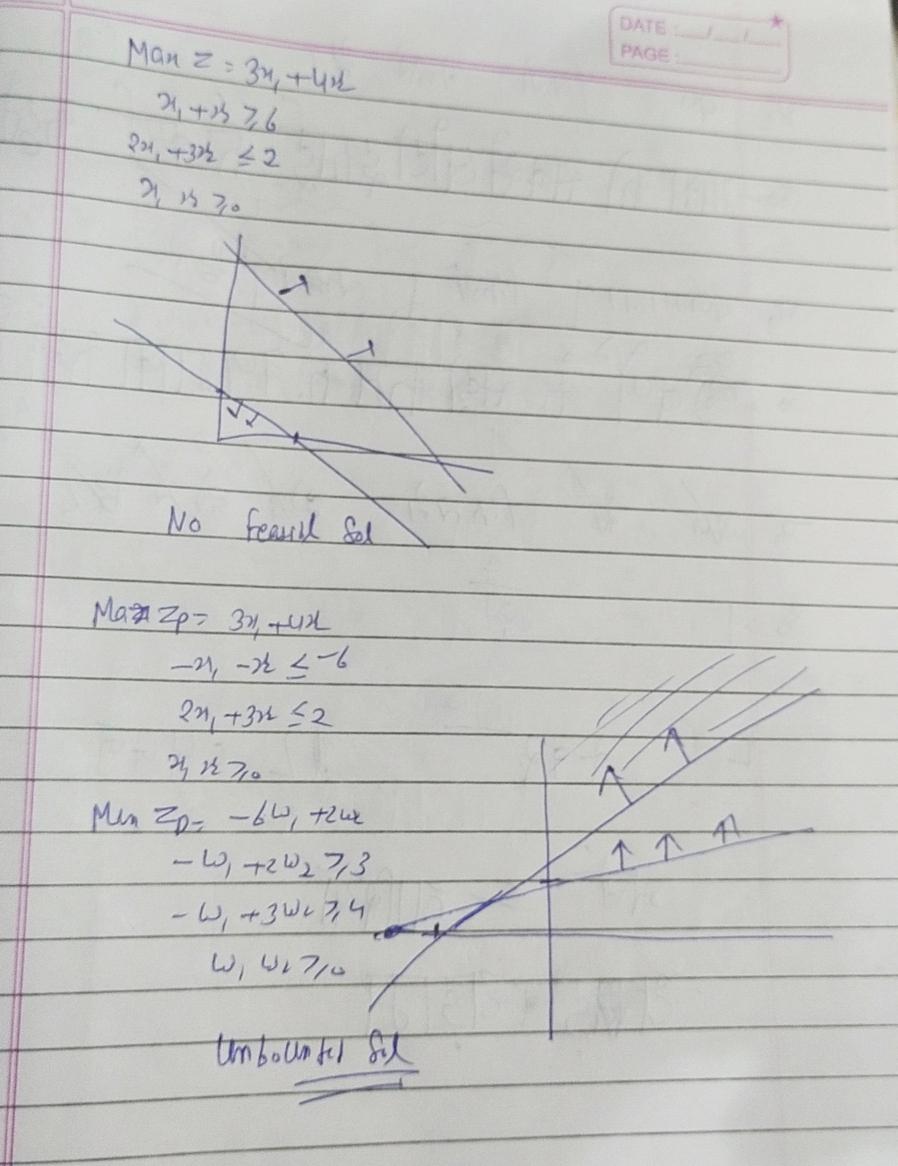 DATE: __/__/__
PAGE:
Max Z = 3x₁ + 4x₂
x₁ + x₂ ⩾ 6
2x₁ + 3x₂ ≤ 2
x₁ x₂ ⩾ 0
No feasibl Sol
Max Zp = 3x₁ + 4x₂
-x₁ - x₂ ≤ -6
2x₁ + 3x₂ ≤ 2
x₁ x₂ ⩾ 0
Min Z_D = -6w₁ + 2w₂
-w₁ + 2w₂ ⩾ 3
-w₁ + 3w₂ ⩾ 4
w₁ w₂ ⩾ 0
Unbounded Sol